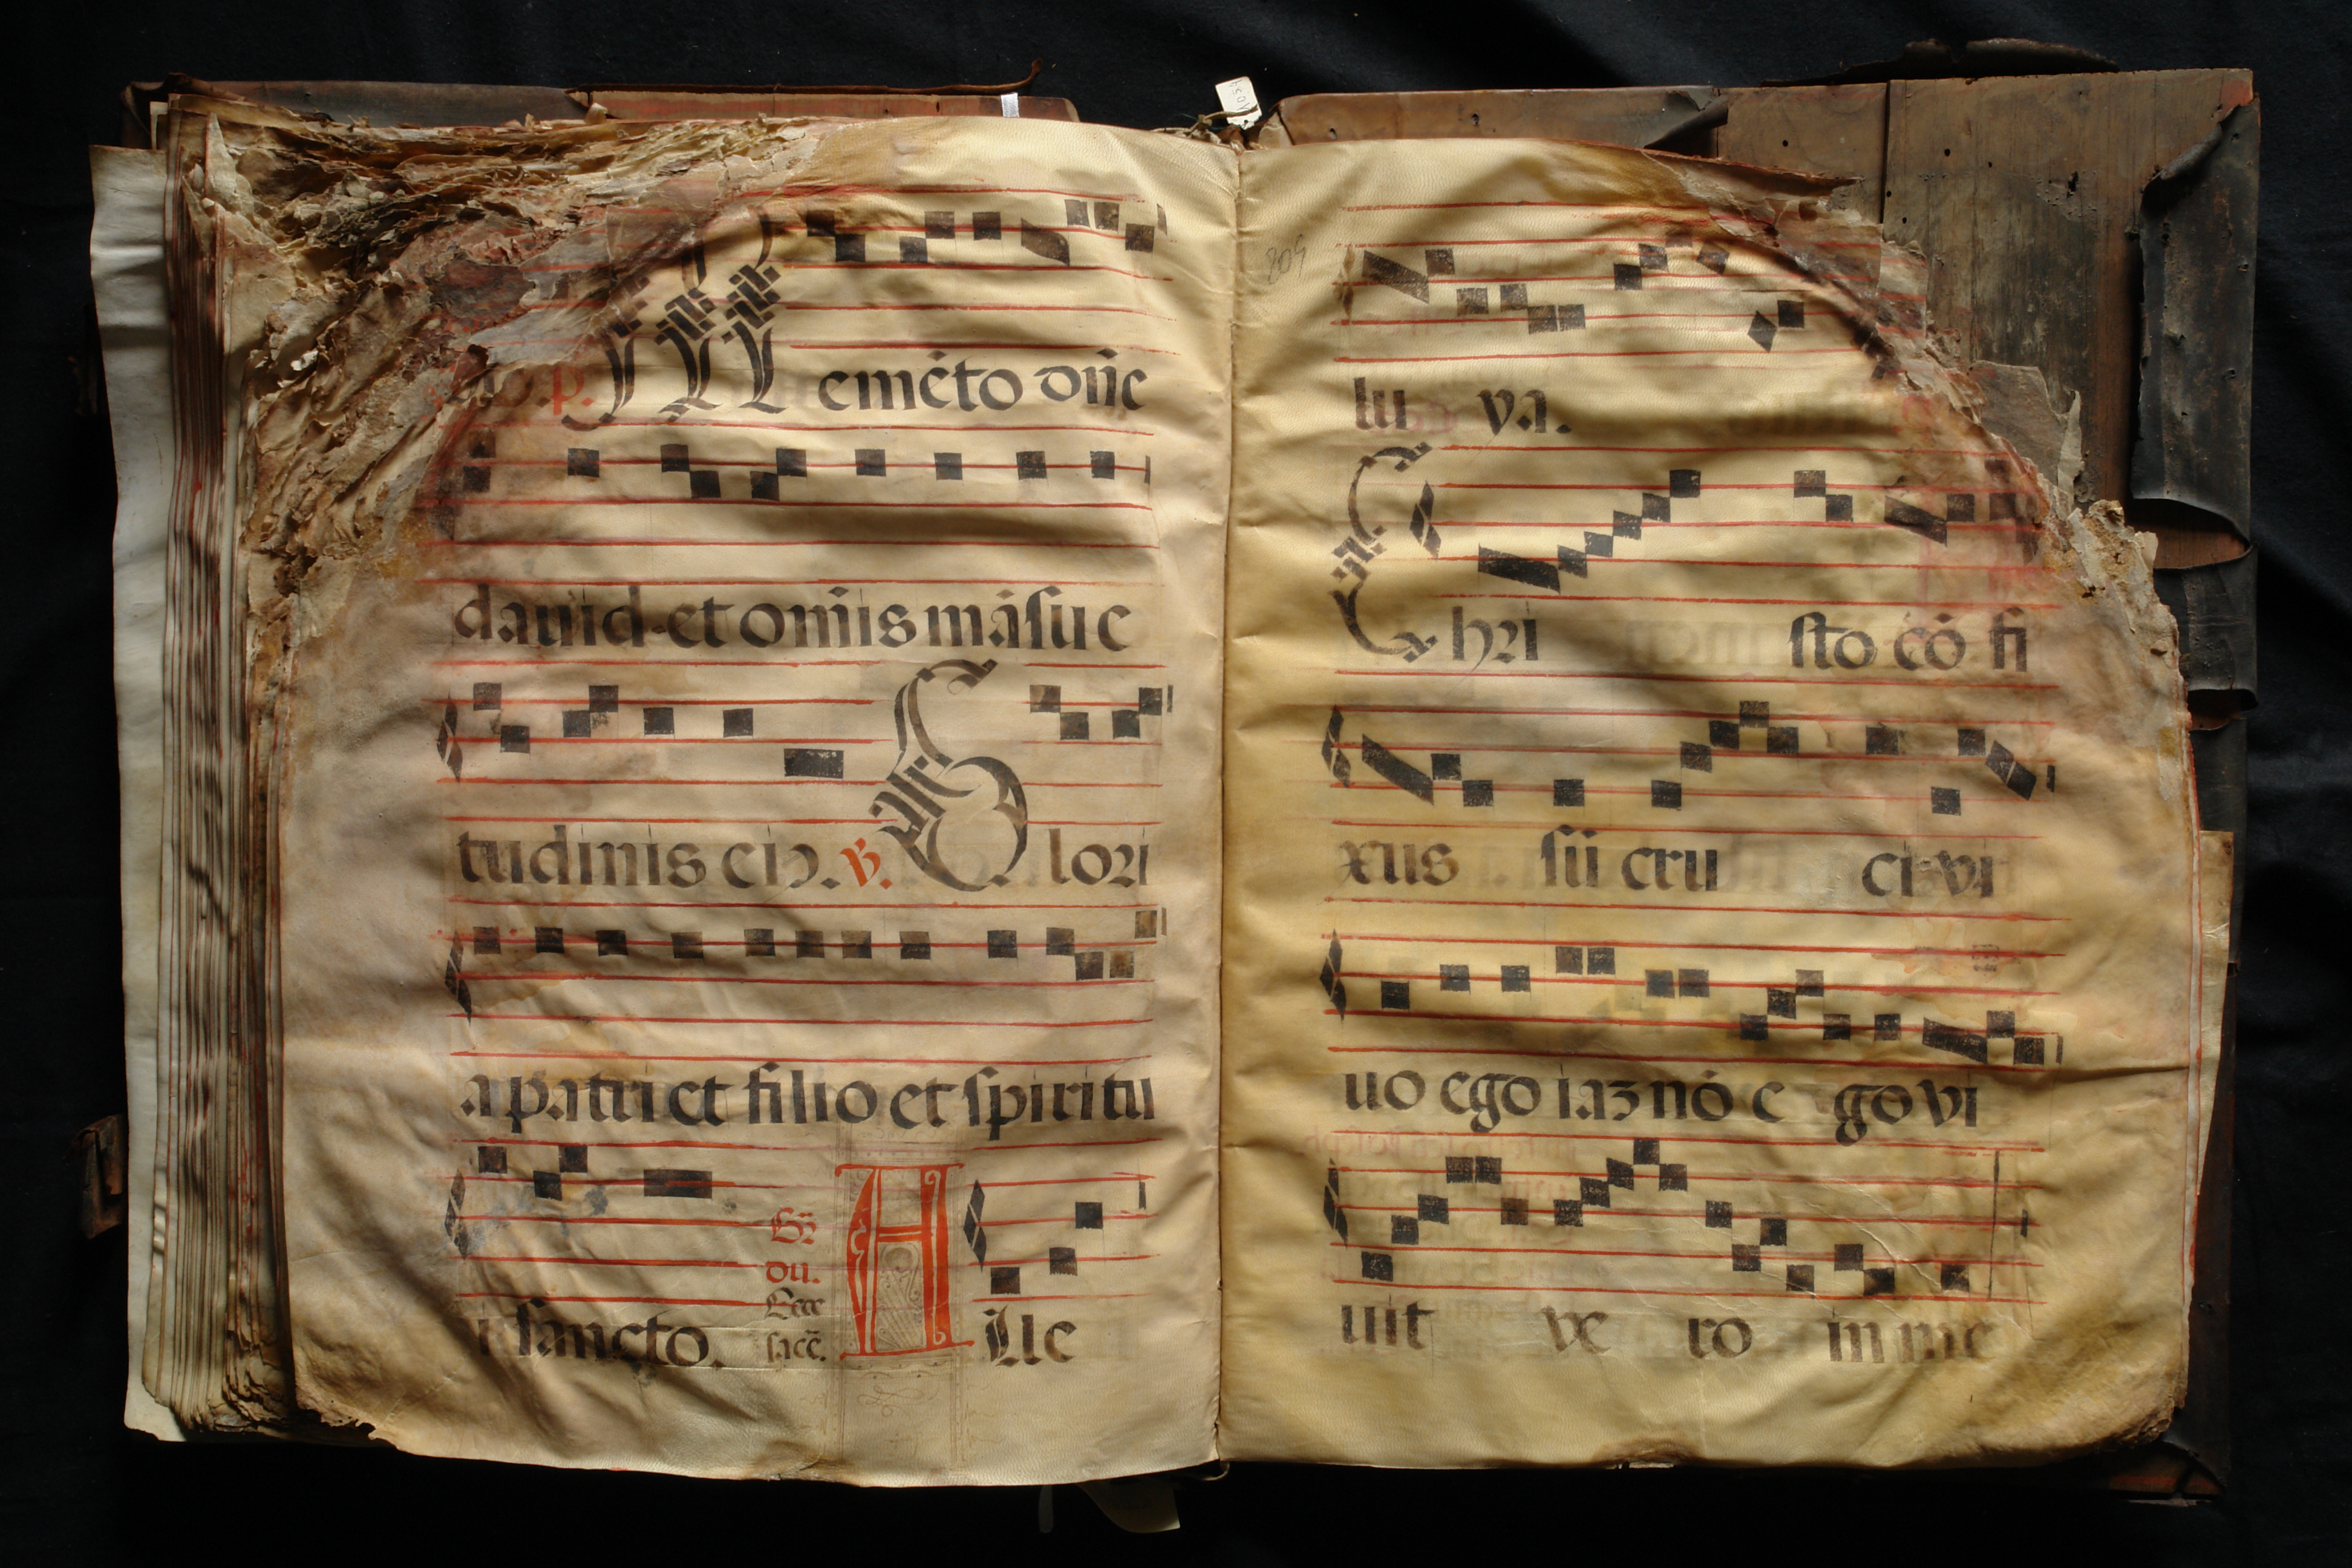 p. Memēto dñe
dauid et om̄is māsue
tudinis eiꝰ. ℣. Glori
a patri et filio et spiritu
i sancto. Gr̃
du.
Ecce
sacẽ. Alle
209
lu ya.
Christo cō fi
xus sū cru ci vi
uo ego iaʒ nō e go vi
uit ve ro in me